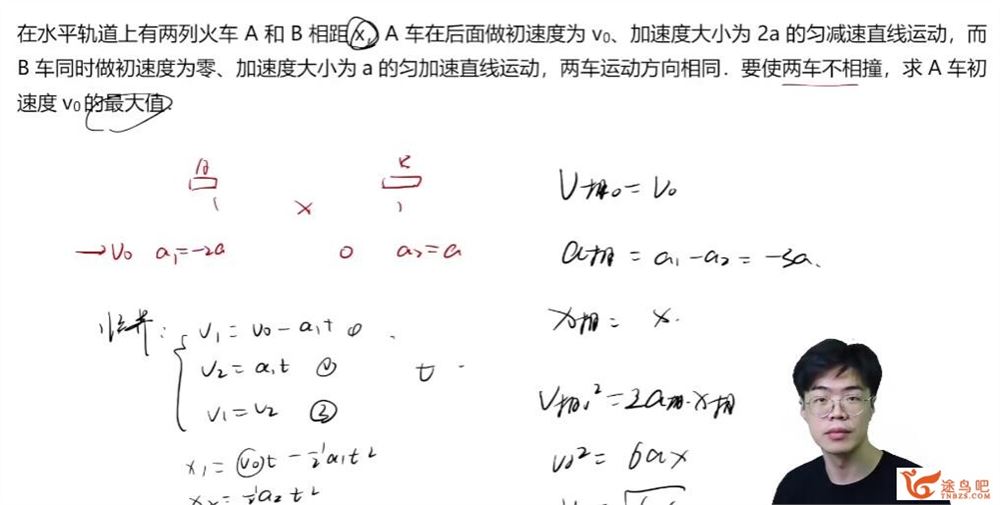 在水平轨道上有两列火车 A 和 B 相距 x，A 车在后面做初速度为 v₀、加速度大小为 2a 的匀减速直线运动，而
B 车同时做初速度为零、加速度大小为 a 的匀加速直线运动，两车运动方向相同．要使两车不相撞，求 A 车初
速度 v₀ 的最大值．
A
x
→v₀ a₁=-2a
0 a₂=a
临界：
v₁=v₀-a₁t ①
v₂=a₁t ②
v₁=v₂ ③
t
x₁=v₀t-½a₁t²
x₂=½a₂t²
V相₀=v₀
a相=a₁-a₂=-3a.
x相=x.
V相₁²=2a相·x相
v₀²=6ax
途鸟吧
TNBZS.COM